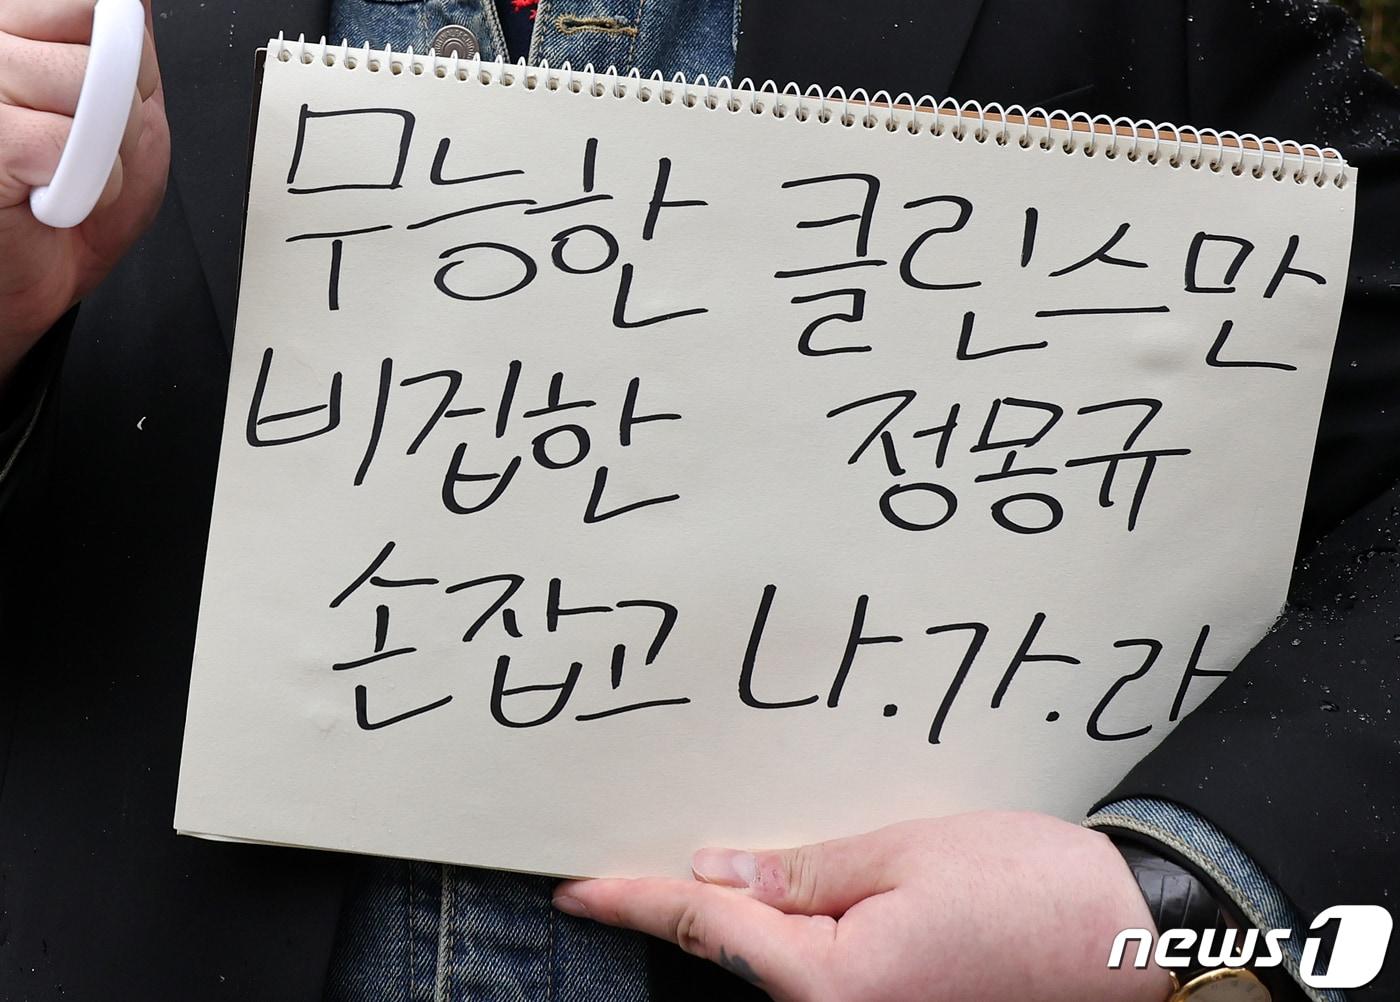 무능한 클린스만
비겁한 정몽규
손잡고 나.가.라
news1